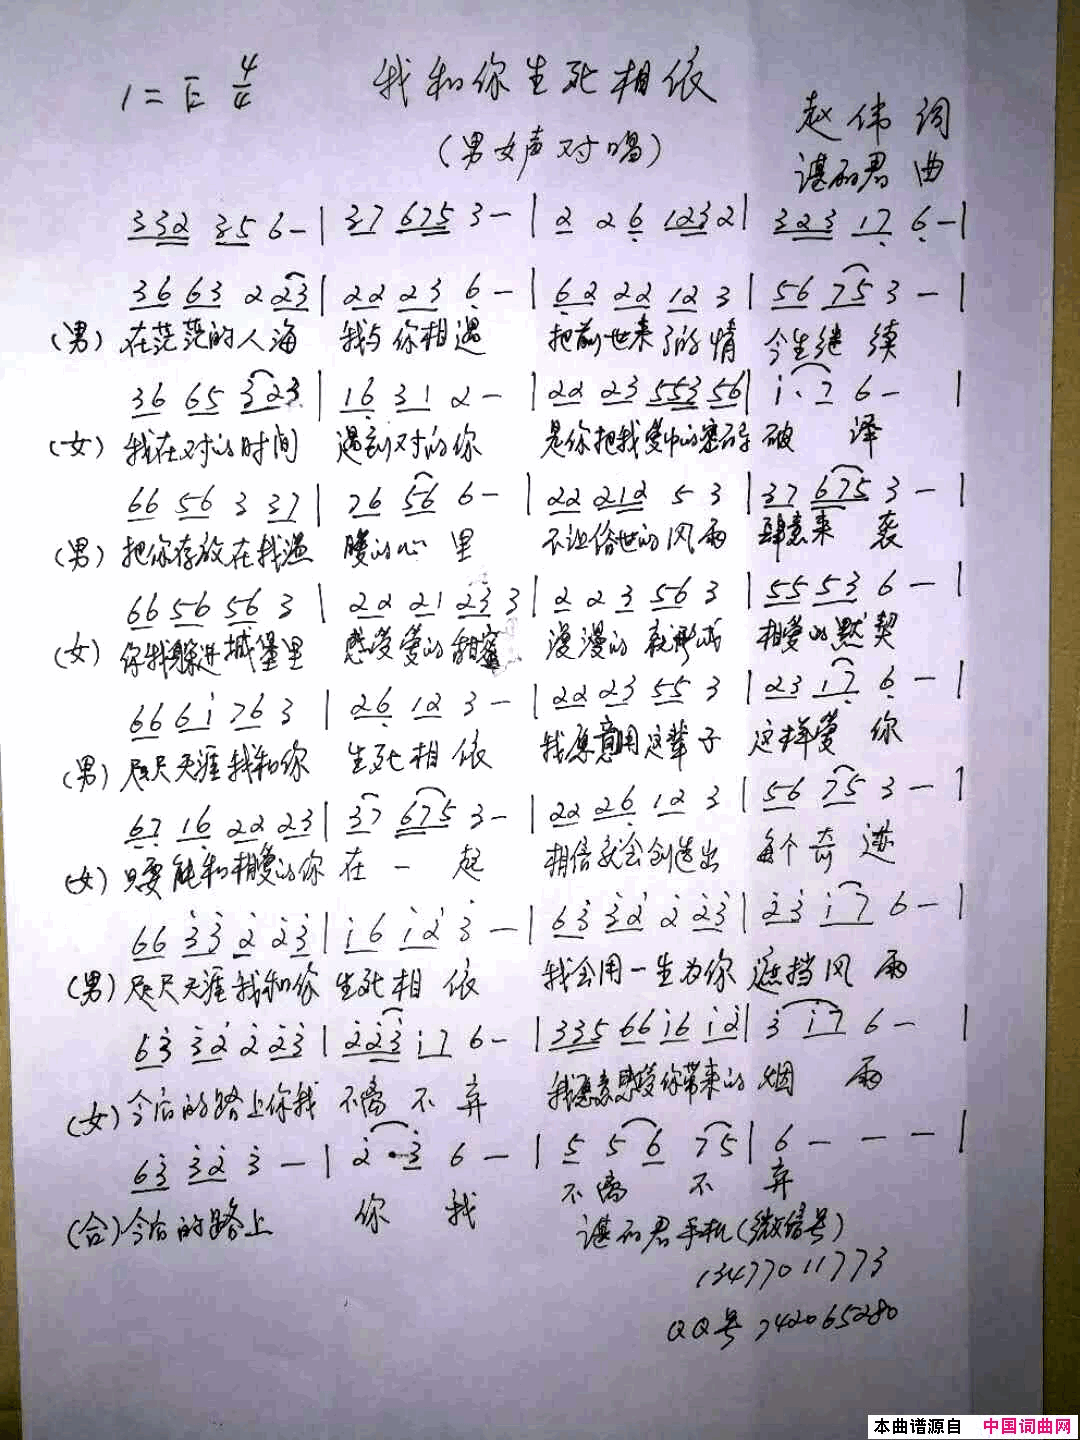 1=E 4/4 我和你生死相依
(男女声对唱)
赵伟 词
谌丽君 曲
332 35 6- | 37 675 3- | 2 26 1232 | 323 17 6- |
36 63 2 23 | 22 23 6- | 62 22 12 3 | 56 75 3- |
(男) 在茫茫的人海 我与你相遇 把前世未了的情 今生继续
36 65 323 | 16 31 2- | 22 23 553 56 | i·7 6- |
(女) 我在对的时间 遇到对的你 是你把我爱的密码 破译
66 56 3 37 | 76 56 6- | 22 212 5 3 | 37 675 3- |
(男) 把你存放在我温 暖的心里 不让俗世的风雨 肆意来袭
66 56 56 3 | 22 21 23 3 | 2 2 3 56 3 | 55 53 6- |
(女) 你我躲进城堡里 感受爱的甜蜜 漫漫的 相爱的默契
66 6i 76 3 | 26 12 3- | 22 23 55 3 | 23 17 6- |
(男) 咫尺天涯我和你 生死相依 我愿意用这辈子 这样爱你
67 16 22 23 | 37 675 3- | 22 26 12 3 | 56 75 3- |
(女) 只要能和相爱的你 在一起 相信就会创造出 每个奇迹
66 33 2 23 | i6 i2 3- | 63 32 2 23 | 23 i7 6- |
(男) 咫尺天涯我和你 生死相依 我会用一生为你 遮挡风雨
63 32 2 23 | 223 i7 6- | 335 66 i6 i2 | 3 i7 6- |
(女) 今后的路上你我 不离不弃 我愿意感受你带来的 烟雨
63 32 3- | 2·3 6- | 5 5 6 75 | 6 - - - |
(合) 今后的路上 你我 不离不弃
谌丽君手机(微信号)
13477011773
QQ号 742065280
本曲谱源自 中国词曲网